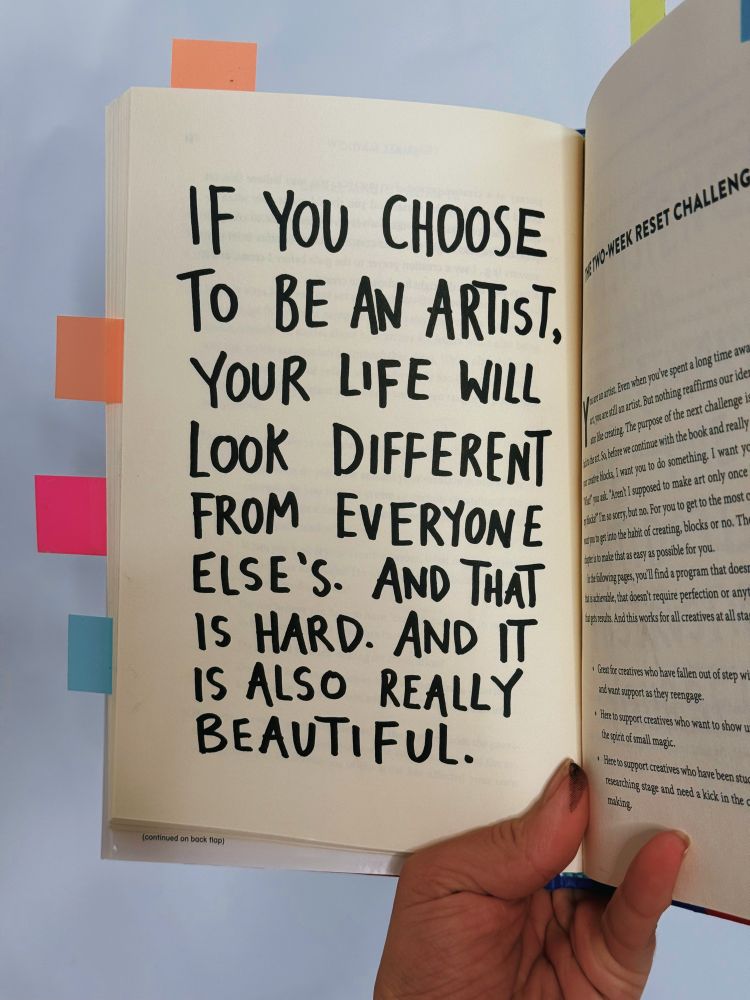 IF YOU CHOOSE
TO BE AN ARTIST,
YOUR LIFE WILL
LOOK DIFFERENT
FROM EVERYONE
ELSE'S. AND THAT
IS HARD. AND IT
IS ALSO REALLY
BEAUTIFUL.
(continued on back flap)
THE TWO-WEEK RESET CHALLENG
You are an artist. Even when you've spent a long time awa
art, you are still an artist. But nothing reaffirms our iden
like creating. The purpose of the next challenge is
to the act. So, before we continue with the book and really
creative blocks, I want you to do something. I want yo
you ask. "Aren't I supposed to make art only once
my blocks?" I'm so sorry, but no. For you to get to the most o
you to get into the habit of creating, blocks or no. The
is to make that as easy as possible for you.
In the following pages, you'll find a program that doesn
that is achievable, that doesn't require perfection or anyt
that gets results. And this works for all creatives at all sta
• Great for creatives who have fallen out of step wi
and want support as they reengage.
• Here to support creatives who want to show u
the spirit of small magic.
• Here to support creatives who have been stuc
researching stage and need a kick in the c
making.